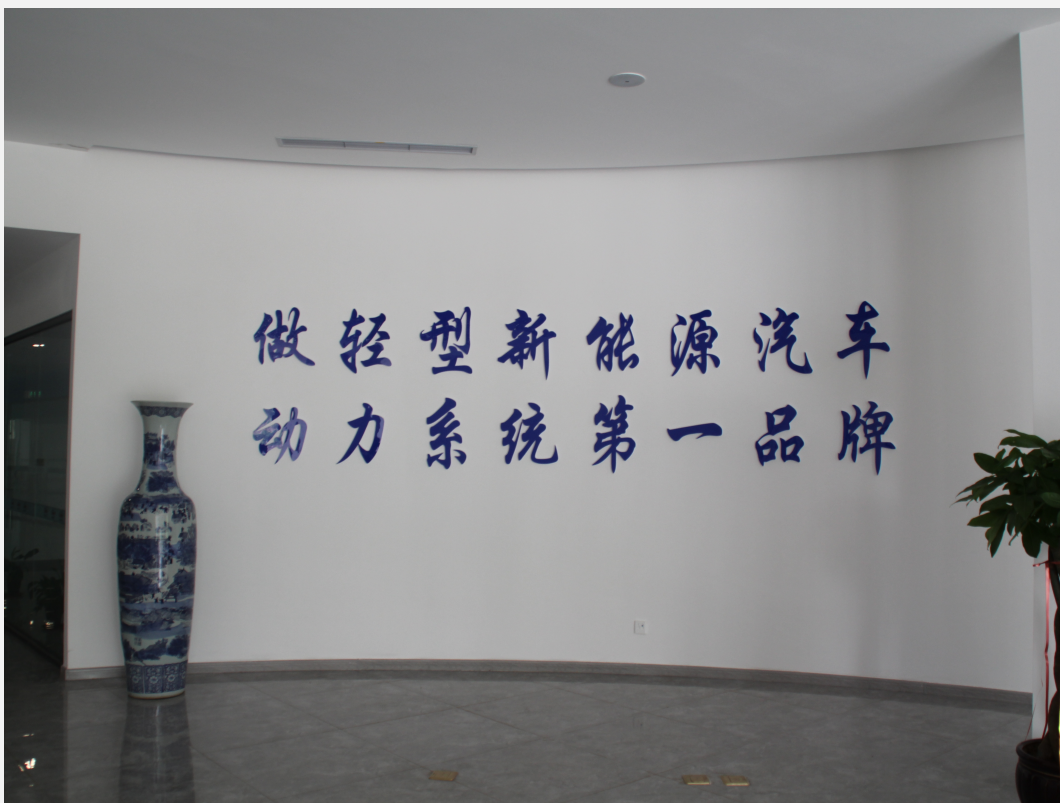 做轻型新能源汽车
动力系统第一品牌